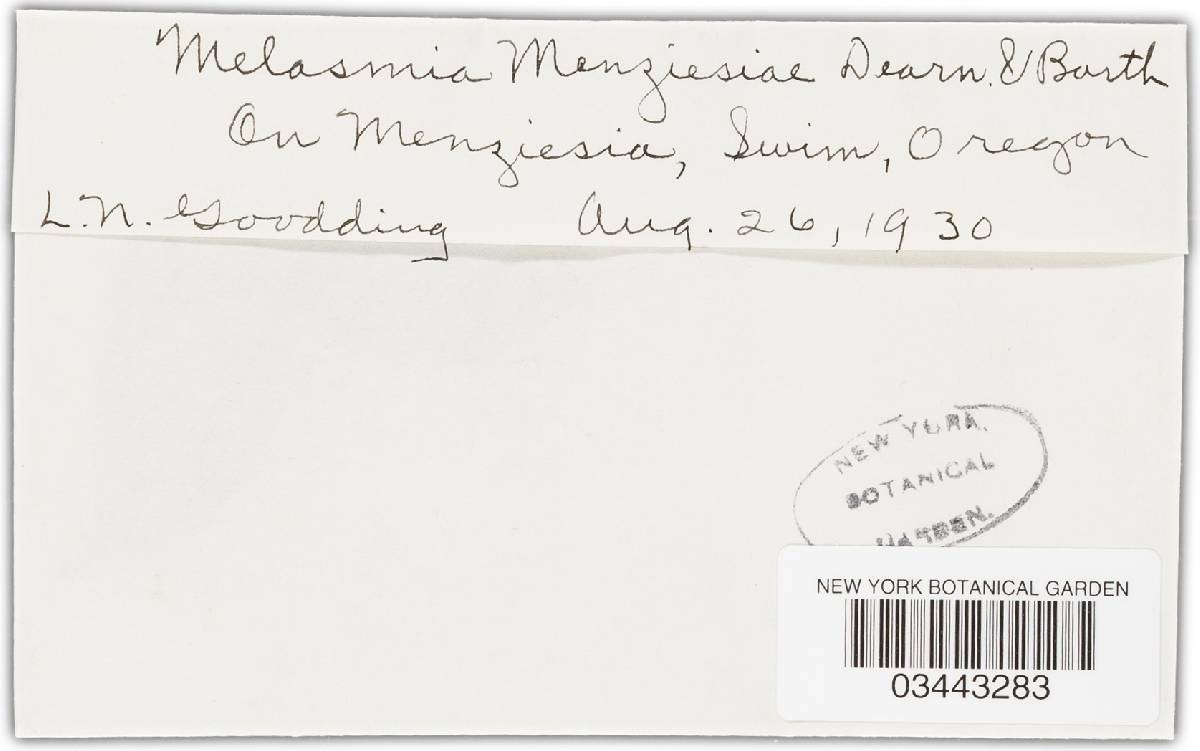 Melasmia Menziesiae Dearn. & Barth
On Menziesia, Swim, Oregon
L.N. Goodding Aug. 26, 1930
NEW YORK
BOTANICAL
GARDEN.
NEW YORK BOTANICAL GARDEN
03443283